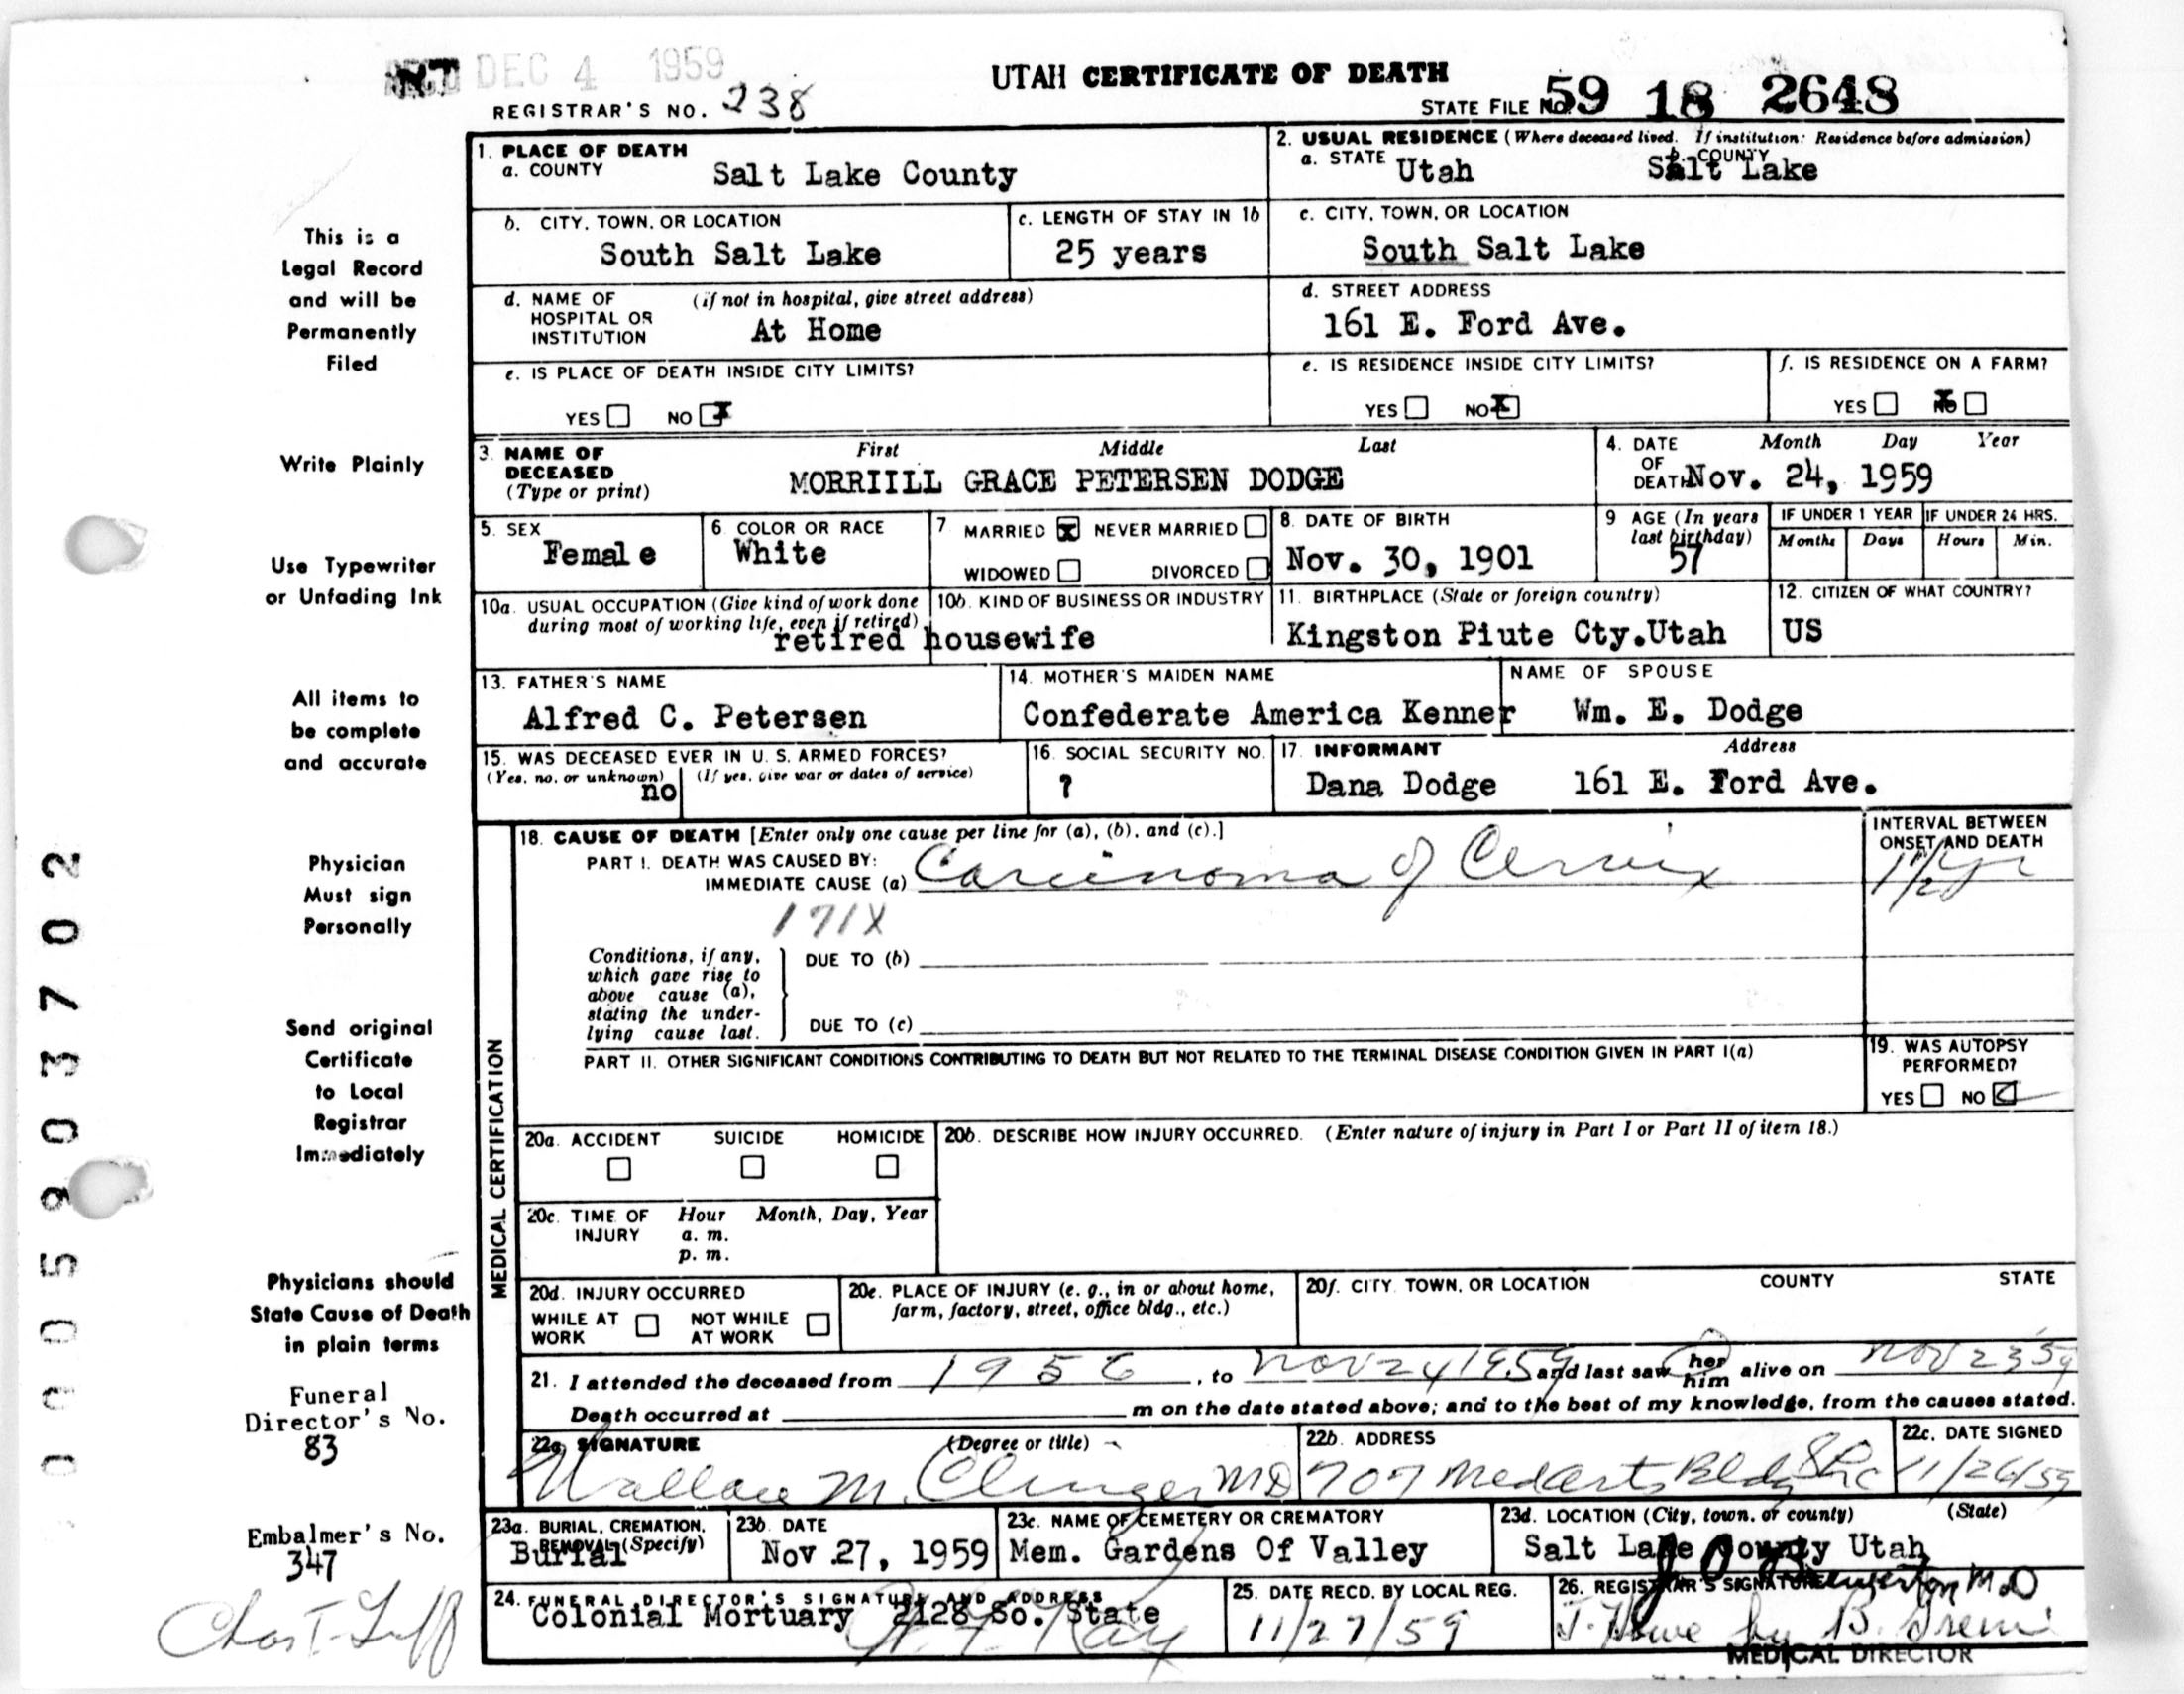 REC'D DEC 4 1959
UTAH CERTIFICATE OF DEATH
REGISTRAR'S NO. 238
STATE FILE NO. 59 18 2648
1. PLACE OF DEATH
a. COUNTY Salt Lake County
2. USUAL RESIDENCE (Where deceased lived. If institution: Residence before admission)
a. STATE Utah b. COUNTY Salt Lake
b. CITY, TOWN, OR LOCATION South Salt Lake
c. LENGTH OF STAY IN 1b 25 years
c. CITY, TOWN, OR LOCATION South Salt Lake
d. NAME OF HOSPITAL OR INSTITUTION (if not in hospital, give street address) At Home
d. STREET ADDRESS 161 E. Ford Ave.
e. IS PLACE OF DEATH INSIDE CITY LIMITS?
YES NO X
e. IS RESIDENCE INSIDE CITY LIMITS?
YES NO X
f. IS RESIDENCE ON A FARM?
YES NO X
3. NAME OF DECEASED (Type or print) First Middle Last
MORRIILL GRACE PETERSEN DODGE
4. DATE OF DEATH Month Day Year
Nov. 24, 1959
5. SEX Female
6 COLOR OR RACE White
7 MARRIED X NEVER MARRIED
WIDOWED DIVORCED
8. DATE OF BIRTH Nov. 30, 1901
9 AGE (In years last birthday) 57
IF UNDER 1 YEAR Months Days
IF UNDER 24 HRS. Hours Min.
10a. USUAL OCCUPATION (Give kind of work done during most of working life, even if retired)
10b. KIND OF BUSINESS OR INDUSTRY
retired housewife
11. BIRTHPLACE (State or foreign country) Kingston Piute Cty.Utah
12. CITIZEN OF WHAT COUNTRY? US
13. FATHER'S NAME Alfred C. Petersen
14. MOTHER'S MAIDEN NAME Confederate America Kenner
NAME OF SPOUSE Wm. E. Dodge
15. WAS DECEASED EVER IN U. S. ARMED FORCES?
(Yes, no, or unknown) no (If yes, give war or dates of service)
16. SOCIAL SECURITY NO. ?
17. INFORMANT Address
Dana Dodge 161 E. Ford Ave.
MEDICAL CERTIFICATION
18. CAUSE OF DEATH [Enter only one cause per line for (a), (b), and (c).]
PART I. DEATH WAS CAUSED BY:
IMMEDIATE CAUSE (a) Carcinoma of Cervix
171X
INTERVAL BETWEEN ONSET AND DEATH
1 1/2 yr
Conditions, if any, which gave rise to above cause (a), stating the underlying cause last.
DUE TO (b)
DUE TO (c)
PART II. OTHER SIGNIFICANT CONDITIONS CONTRIBUTING TO DEATH BUT NOT RELATED TO THE TERMINAL DISEASE CONDITION GIVEN IN PART I(a)
19. WAS AUTOPSY PERFORMED?
YES NO
20a. ACCIDENT SUICIDE HOMICIDE
20b. DESCRIBE HOW INJURY OCCURRED. (Enter nature of injury in Part I or Part II of item 18.)
20c. TIME OF INJURY Hour Month, Day, Year
a. m.
p. m.
20d. INJURY OCCURRED
WHILE AT WORK NOT WHILE AT WORK
20e. PLACE OF INJURY (e. g., in or about home, farm, factory, street, office bldg., etc.)
20f. CITY, TOWN, OR LOCATION COUNTY STATE
21. I attended the deceased from 1956, to Nov 24 1959 and last saw her him alive on Nov 23 59
Death occurred at m on the date stated above; and to the best of my knowledge, from the causes stated.
22a. SIGNATURE (Degree or title)
Wallace M. Clinger MD
22b. ADDRESS
707 Med Arts Bldg SLC
22c. DATE SIGNED
11/26/59
23a. BURIAL, CREMATION, REMOVAL (Specify) Burial
23b DATE Nov 27, 1959
23c. NAME OF CEMETERY OR CREMATORY Mem. Gardens Of Valley
23d. LOCATION (City, town, or county) (State)
Salt Lake County Utah
24. FUNERAL DIRECTOR'S SIGNATURE AND ADDRESS
Colonial Mortuary 2128 So. State
25. DATE RECD. BY LOCAL REG.
11/27/59
26. REGISTRAR'S SIGNATURE
M.D
by B.
MEDICAL DIRECTOR
This is a
Legal Record
and will be
Permanently
Filed
Write Plainly
Use Typewriter
or Unfading Ink
All items to
be complete
and accurate
Physician
Must sign
Personally
Send original
Certificate
to Local
Registrar
Immediately
Physicians should
State Cause of Death
in plain terms
Funeral
Director's No.
83
Embalmer's No.
347
0005903702